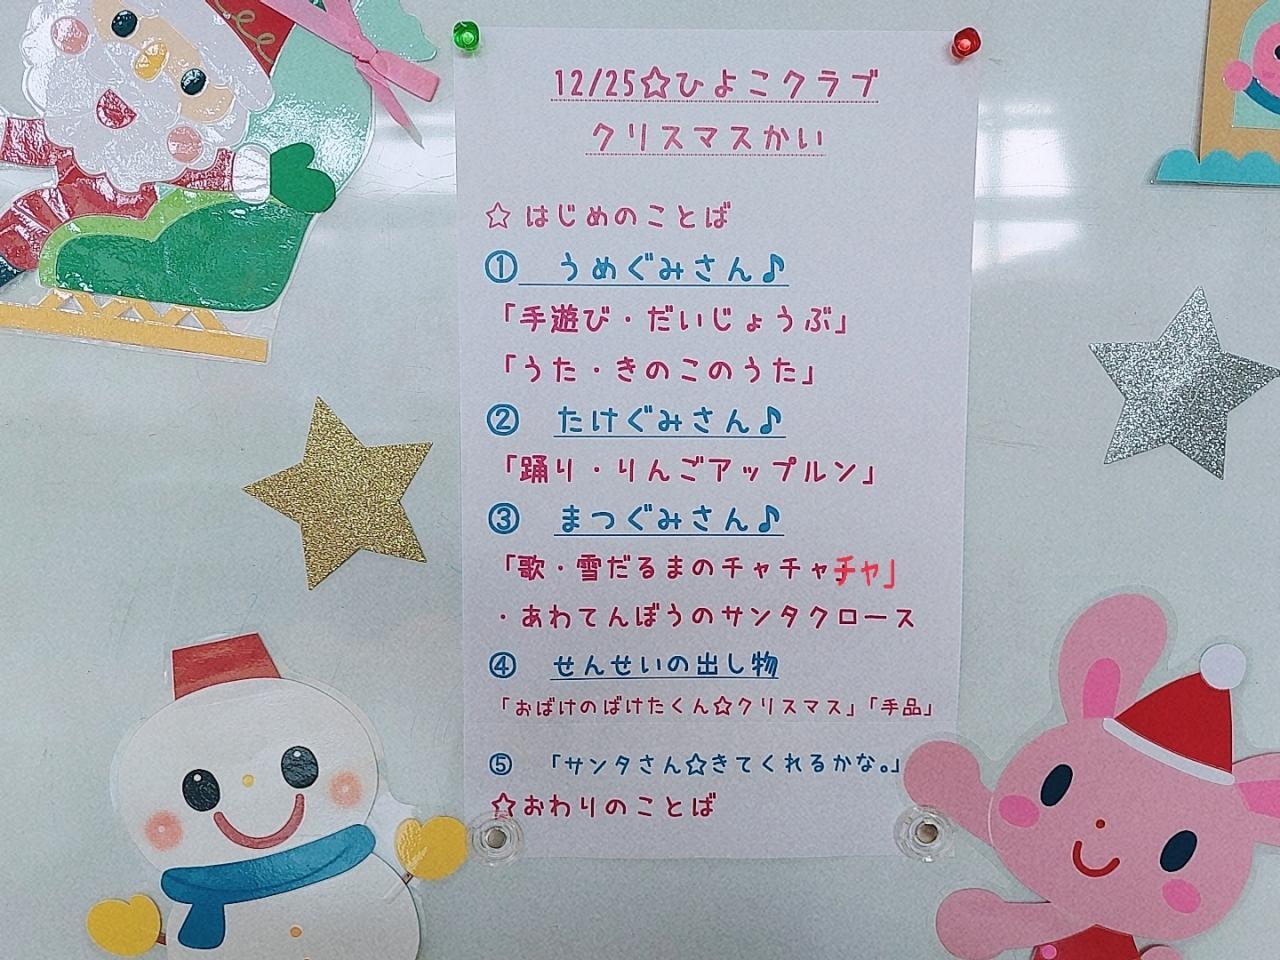 12/25☆ひよこクラブ
クリスマスかい
☆ はじめのことば
① うめぐみさん♪
「手遊び・だいじょうぶ」
「うた・きのこのうた」
② たけぐみさん♪
「踊り・りんごアップルン」
③ まつぐみさん♪
「歌・雪だるまのチャチャチャ」
・あわてんぼうのサンタクロース
④ せんせいの出し物
「おばけのばけたくん☆クリスマス」「手品」
⑤ 「サンタさん☆きてくれるかな。」
☆おわりのことば